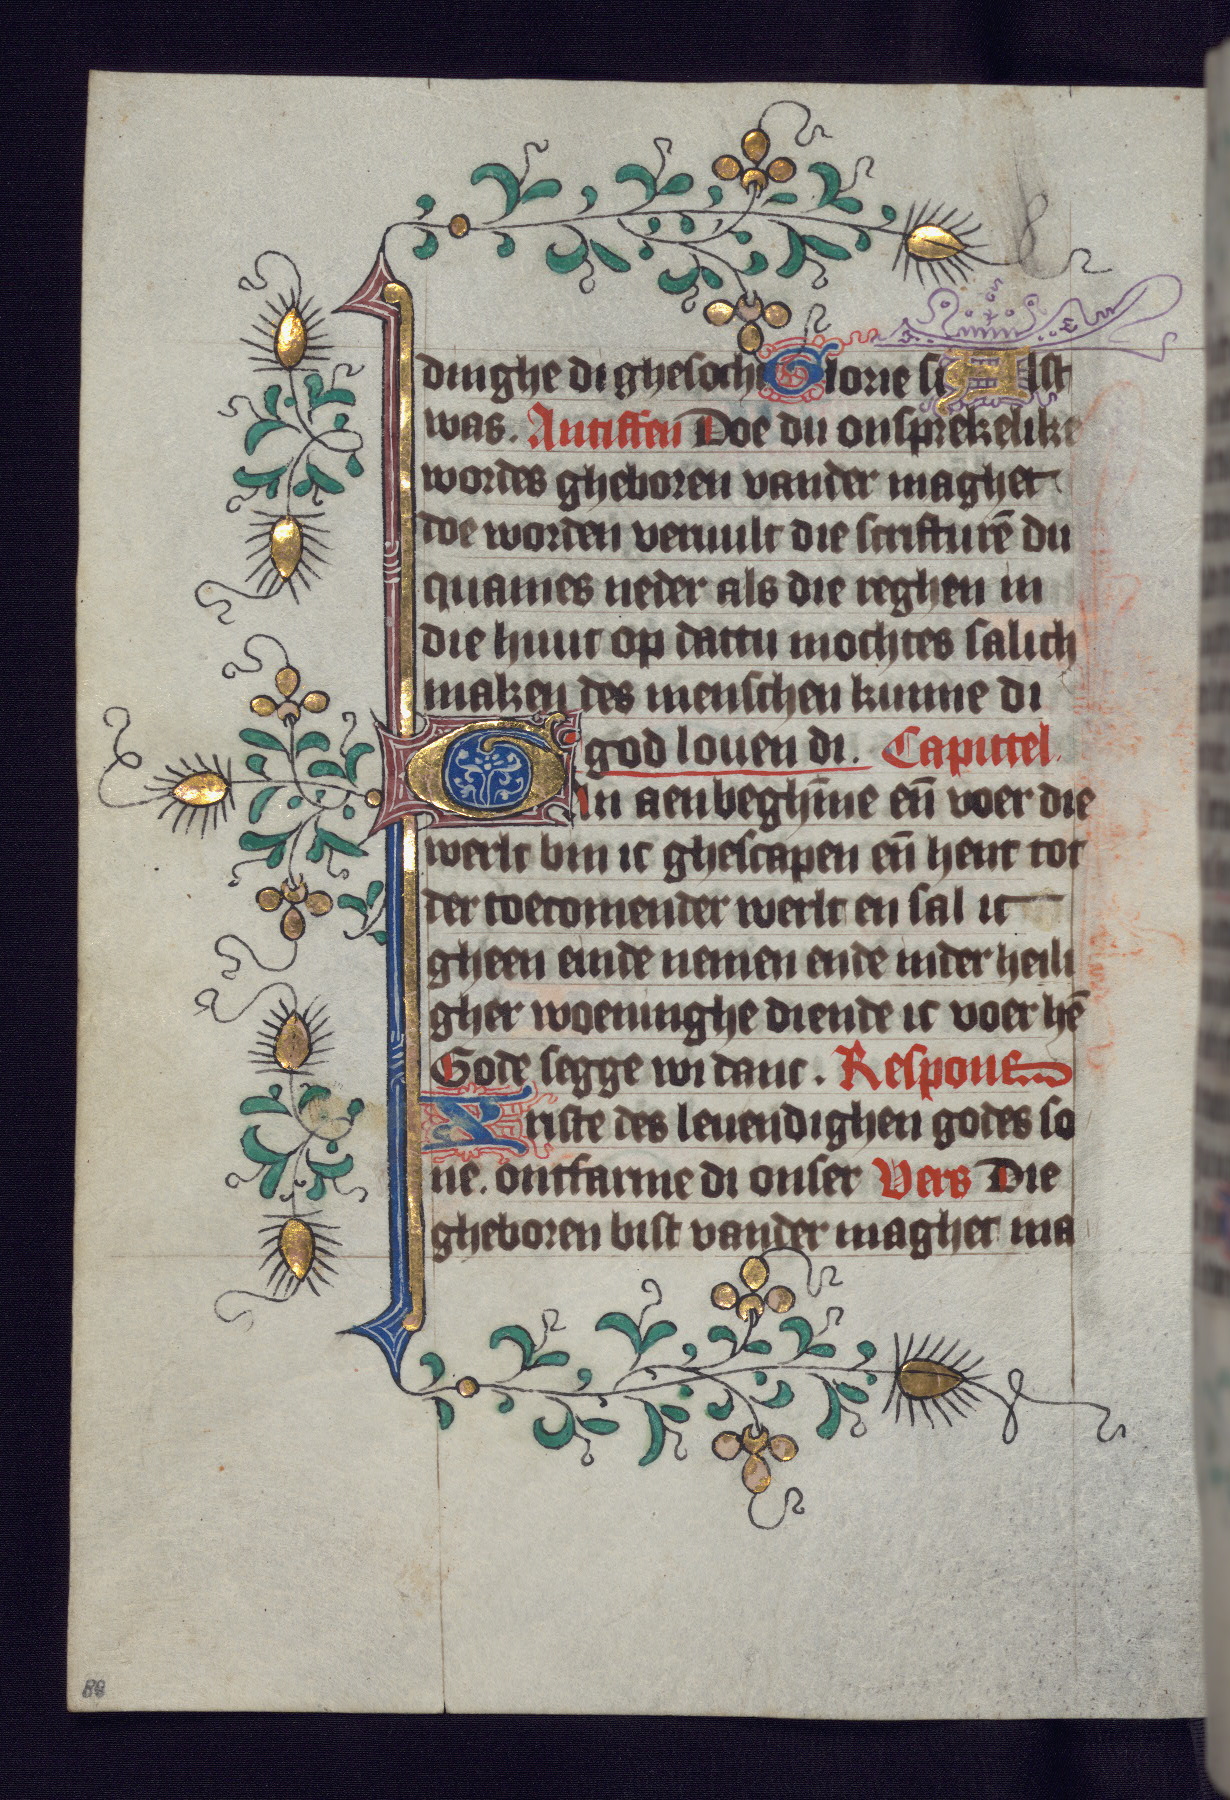 dinghe di ghesocht Glorie si Alst
was. Antiffen Doe du onsprekelike
wordes gheboren vander maghet
doe worden veruult die scrifturē du
quames neder als die reghen in
die huut op dattu mochtes salich
maken des menschen kunne di
god louen di. Capittel
Van aenbeghīne eñ voer die
werlt bin ic ghescapen eñ hent tot
der toecomender werlt en sal ic
gheen einde nemen ende inder heili
gher woeninghe diende ic voer hē
Gode segge wi danc. Respons
Xriste des leuendighen godes so
ne. ontfarme di onser Vers Die
gheboren bist vander maghet ma